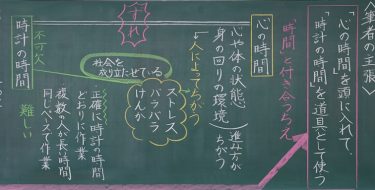 〈筆者の主張〉
「心の時間」を頭に入れて、
「時計の時間」を道具として使う
「時間」と付き合うちえ
心の時間
心や体の状態
身の回りの環境
進み方が
ちがう
人によってちがう
ストレス
バラバラ
けんか
ずれ
社会を
成り立たせている
・正確に時計の時間
どおりに作業
・複数の人が長い時間
同じペースで作業
難しい
不可欠
時計の時間